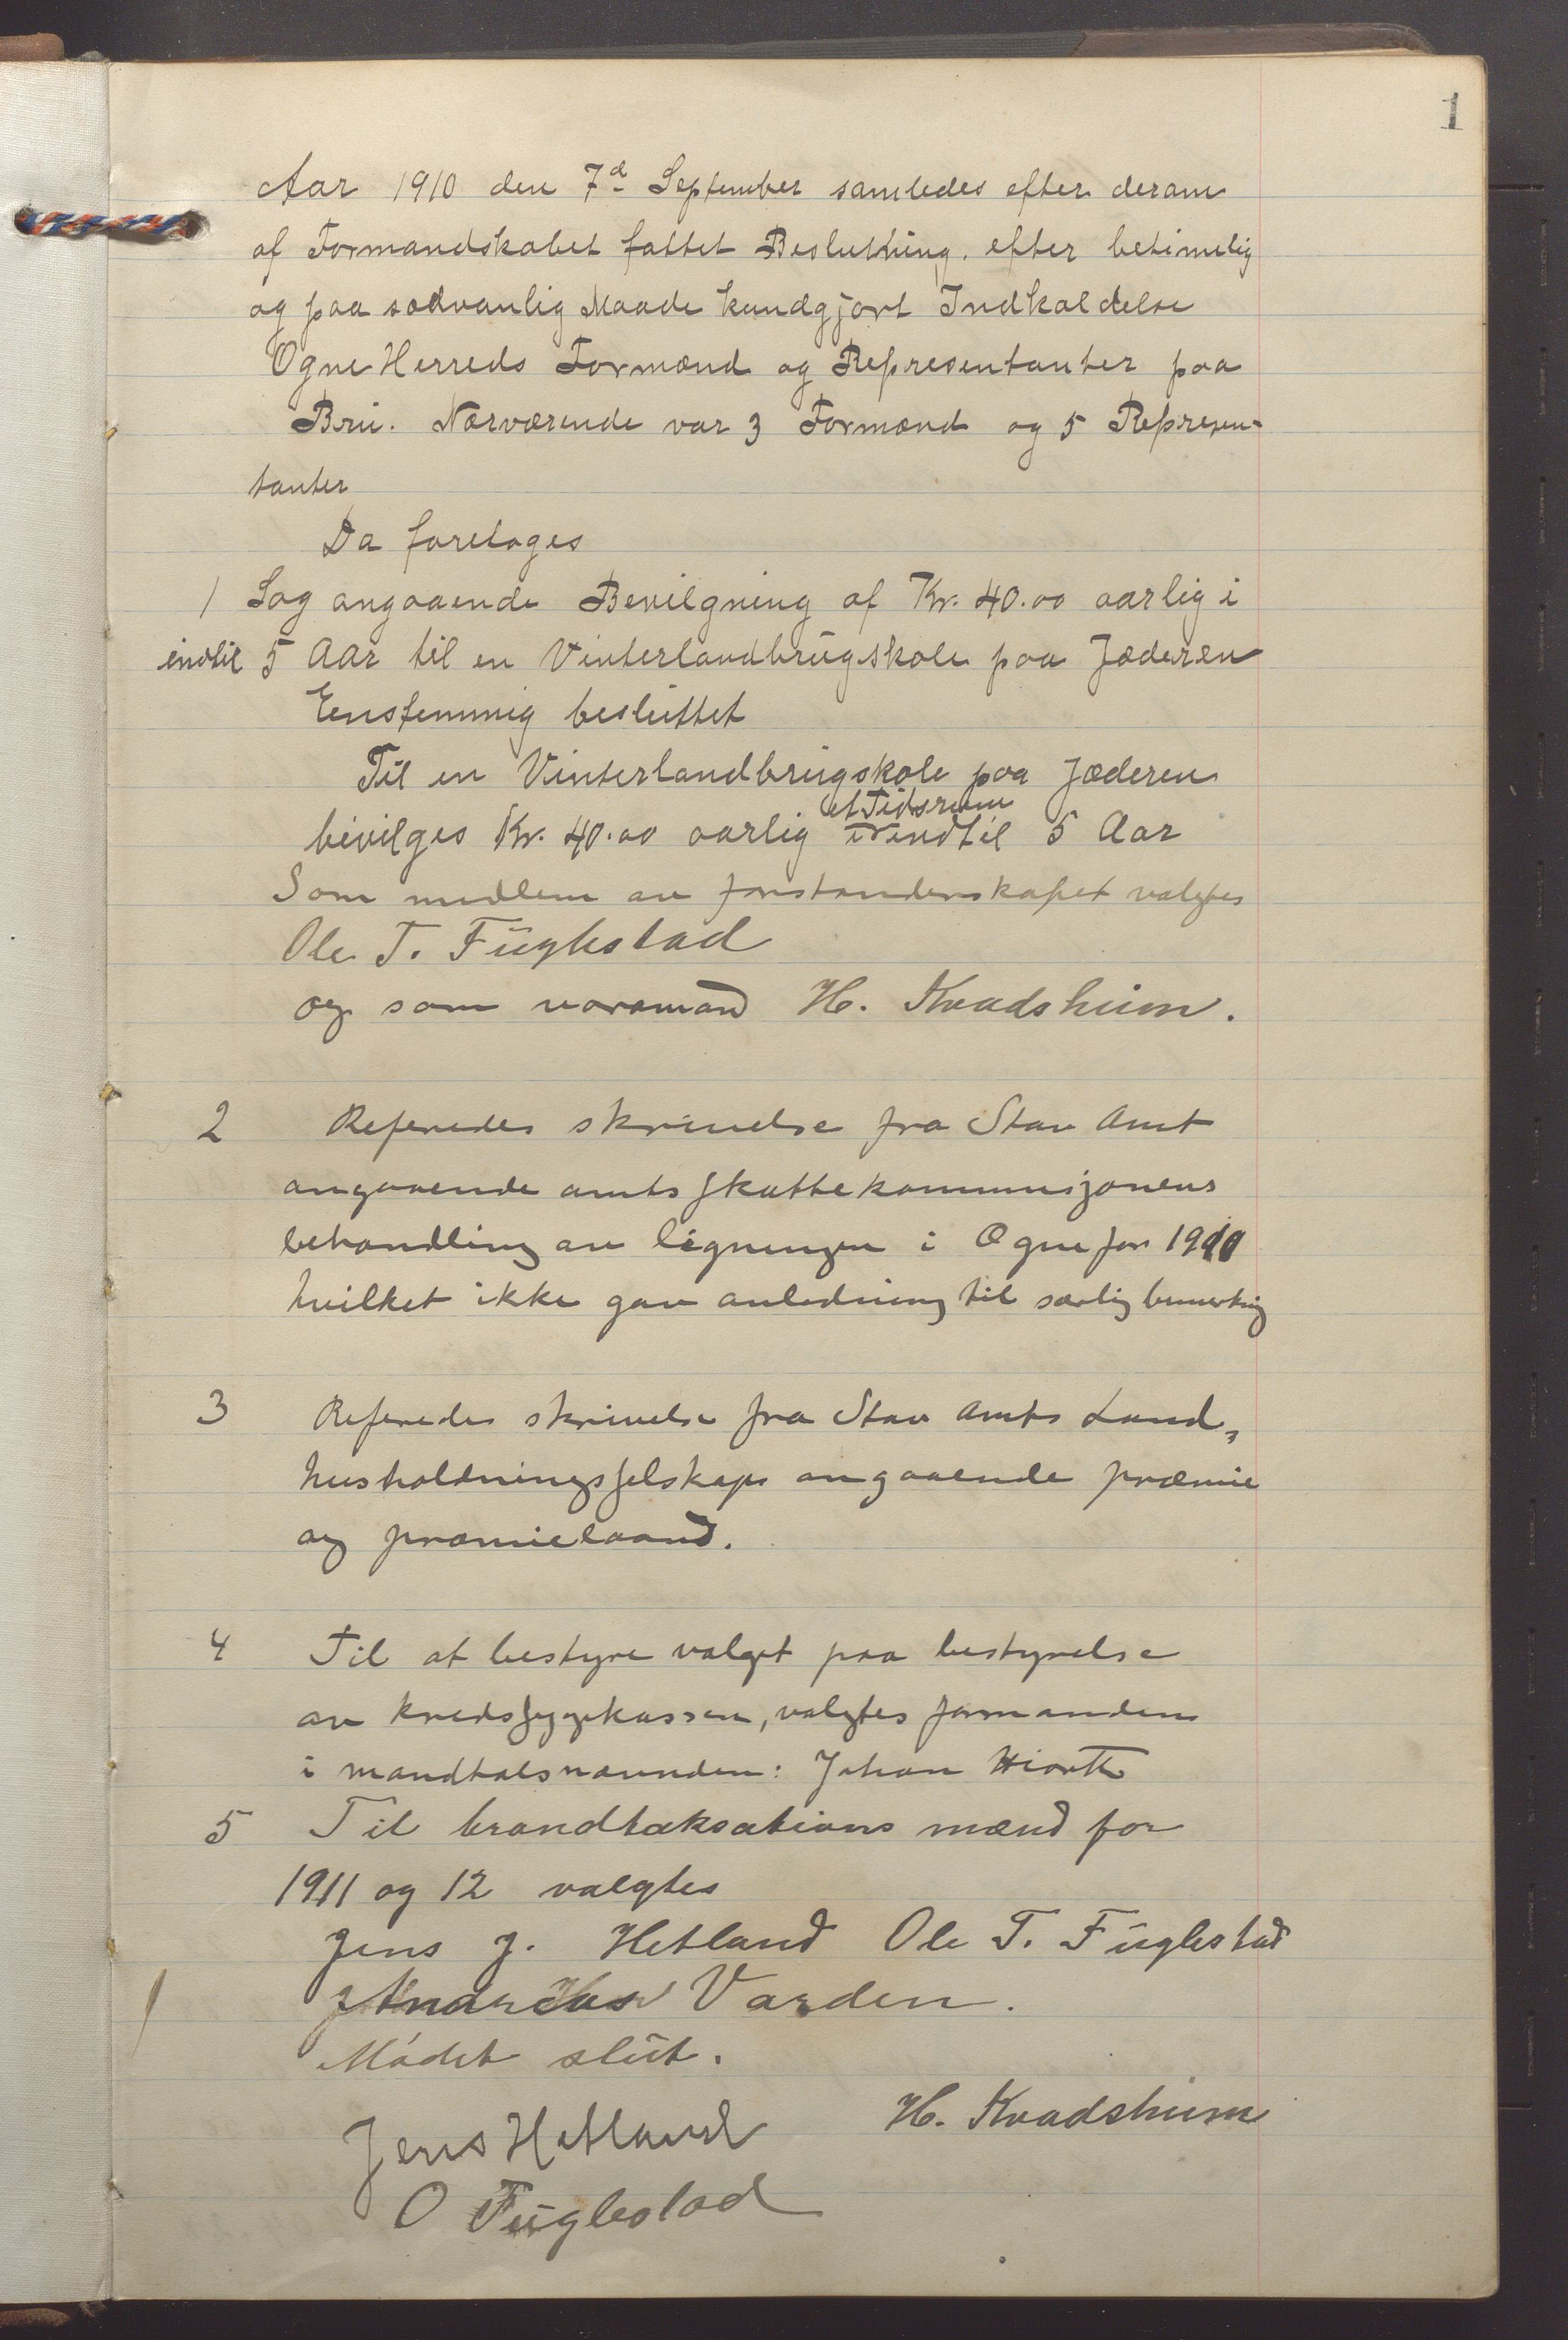 1
Aar 1910 den 7d September samledes efter derom
af Formandskabet fattet Beslutning, efter betimelig
og paa sedvanlig Maade kundgjort Indkaldelse
Ogne Herreds Formænd og Representanter paa
Bru. Nærværende var 3 Formænd og 5 Represen-
tanter
Da foretoges
1 Sag angaaende Bevilgning af Kr. 40.00 aarlig i
indtil 5 Aar til en Vinterlandbrugskole paa Jæderen
Eenstemmig besluttet
Til en Vinterlandbrugskole paa Jæderen
et Tidsrum
bevilges Kr. 40.00 aarlig i indtil 5 Aar
Som medlem av forstanderskapet valgtes
Ole T. Fuglestad
og som varamand H. Kvadsheim.
2 Referedes skrivelse fra Stav Amt
angaaende amtsskattekommisjonens
behandling av ligningen i Ogne for 1910
hvilket ikke gav anledning til særlig bemerkning
3 Referedes skrivelse fra Stav Amts Land„
husholdningsselskap angaaende præmie
og præmielaand.
4 Til at bestyre valget paa bestyrelse
av kredssygekassen, valgtes formanden
i mandtalsnævnden: Johan Hiorth
5 Til brandtaksations mænd for
1911 og 12 valgtes
Jens J. Hetland Ole T. Fuglestad
Andreas Varden.
Mødet slut.
Jens Hetland H. Kvadsheim
O Fuglestad